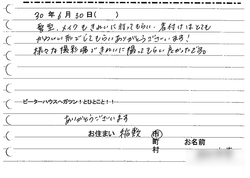 30年6月30日( )
髪型、メイクもきれいに行ってもらい、着付けはとても
かわいい形にしてもらいありがとうございます!
様々な撮影場できれいに撮ってもらい良かったです。
ピーターハウスへガツン!とひとこと!!
ありがとうございます
お住まい 稲敷 市
町
村
お名前